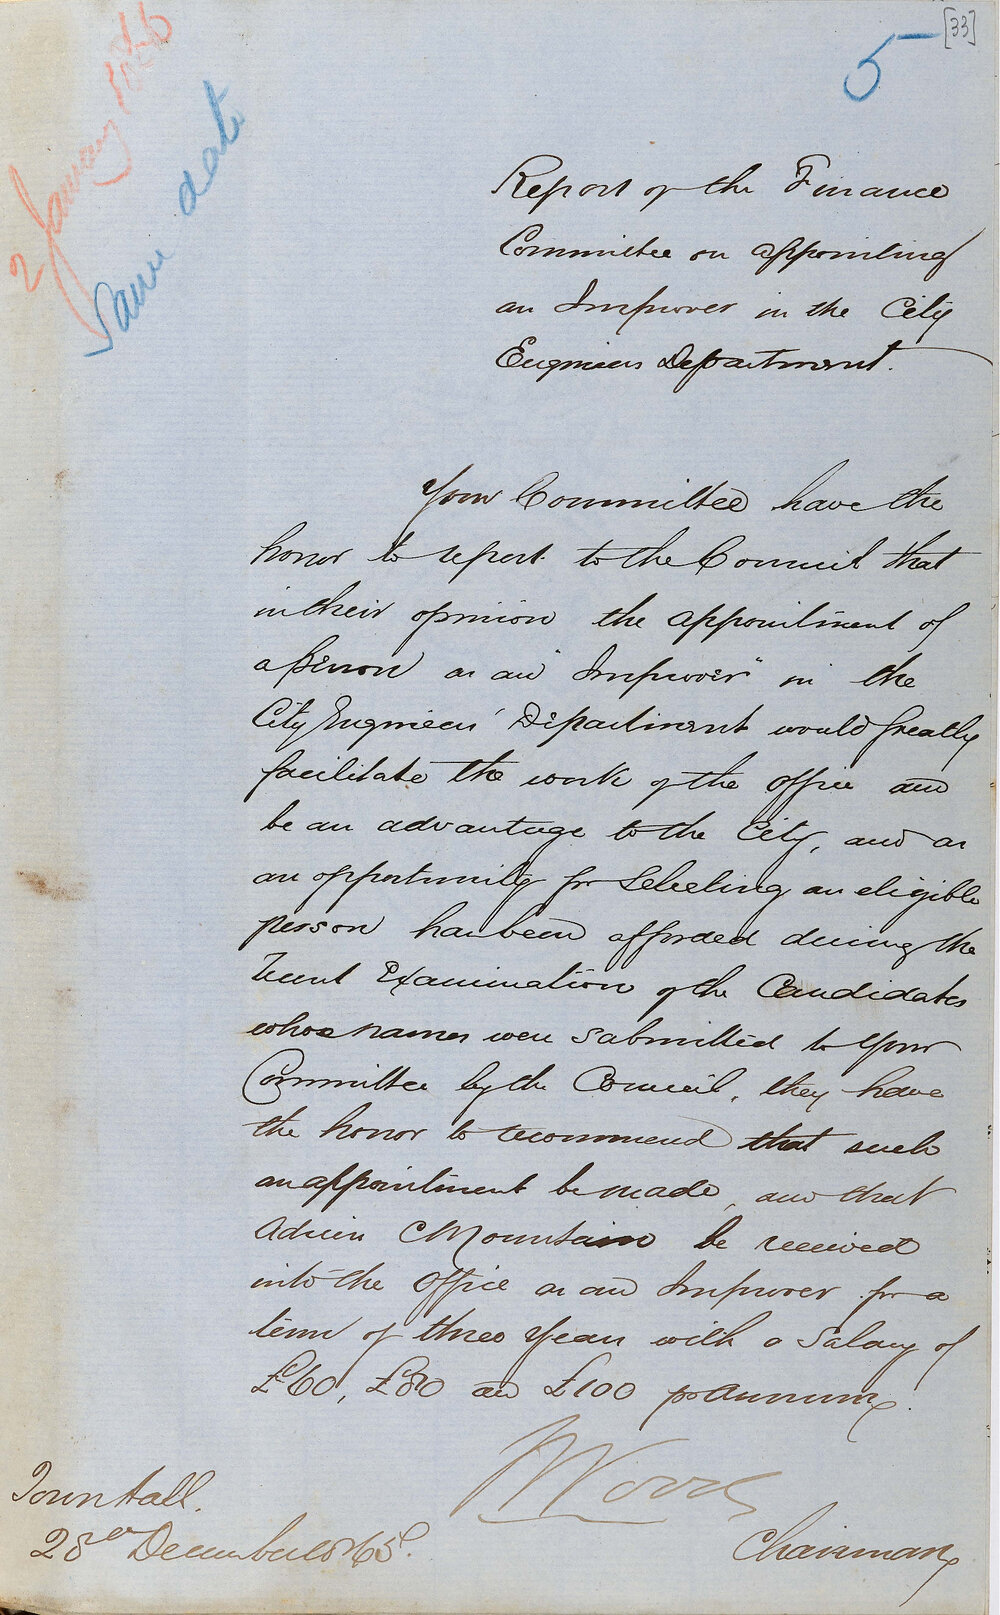 [33]
5
2 January 1866
Same date
Report of the Finance
Committee on appointing
an Improver in the City
Engineers Department.
Your Committee have the
honor to report to the Council that
in their opinion the appointment of
a person as an "Improver" in the
City Engineers' Department would greatly
facilitate the work of the office and
be an advantage to the City, and as
an opportunity for selecting an eligible
person has been afforded during the
recent Examination of the Candidates
whose names were submitted to your
Committee by the Council, they have
the honor to recommend that such
an appointment be made, and that
Adrien Mountain be received
into the Office as an Improver for a
term of three years with a salary of
£60, £80 and £100 pr annum.
Woods
Chairman
Town Hall.
28th December 1865.